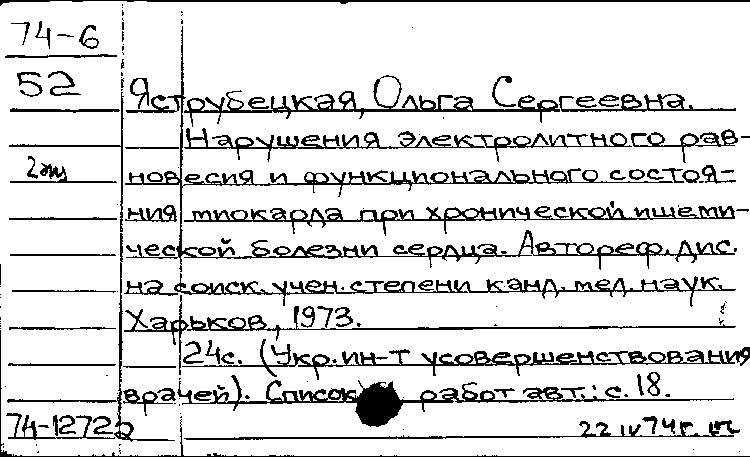 74-6
52
Яструбецкая, Ольга Сергеевна.
Нарушения электролитного рав-
2 экз
новесия и функционального состоя-
ния миокарда при хронической ишеми-
ческой болезни сердца. Автореф. дис.
на соиск. учен. степени канд. мед. наук.
Харьков, 1973.
24с. (Укр. ин-т усовершенствования
врачей). Список работ авт.: с. 18.
74-12722
22 IV 74г.